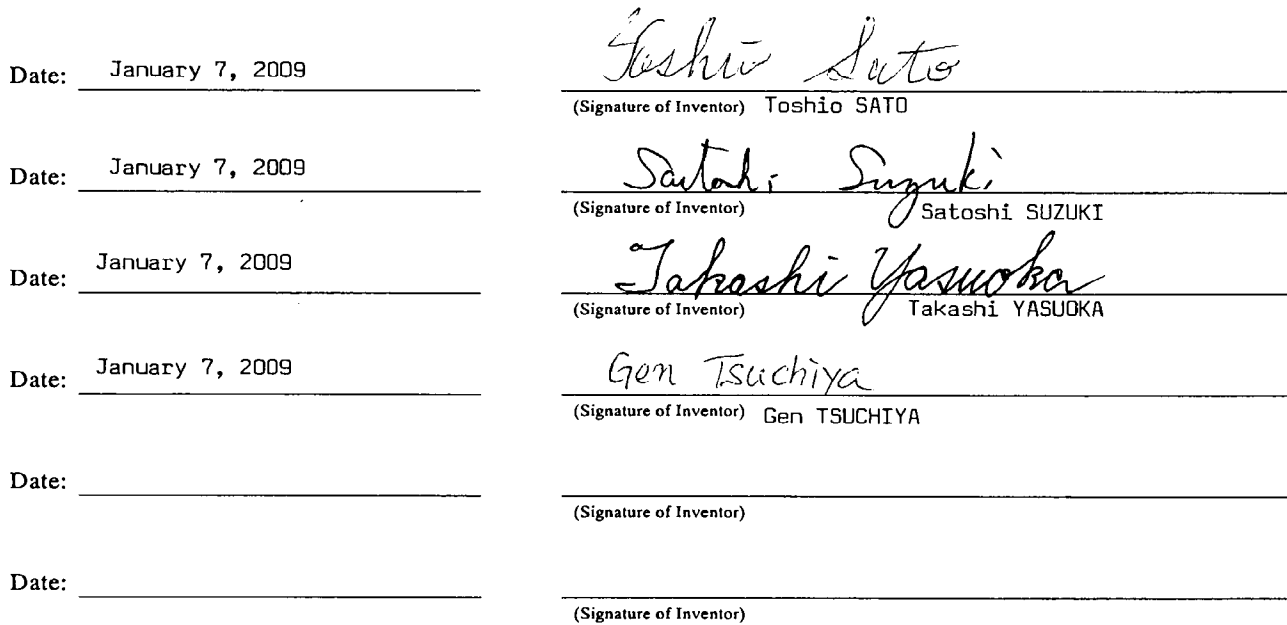 Date: January 7, 2009 Toshio Sato
(Signature of Inventor) Toshio SATO
Date: January 7, 2009 Satoshi Suzuki
(Signature of Inventor) Satoshi SUZUKI
Date: January 7, 2009 Takashi Yasuoka
(Signature of Inventor) Takashi YASUOKA
Date: January 7, 2009 Gen Tsuchiya
(Signature of Inventor) Gen TSUCHIYA
Date:
(Signature of Inventor)
Date:
(Signature of Inventor)